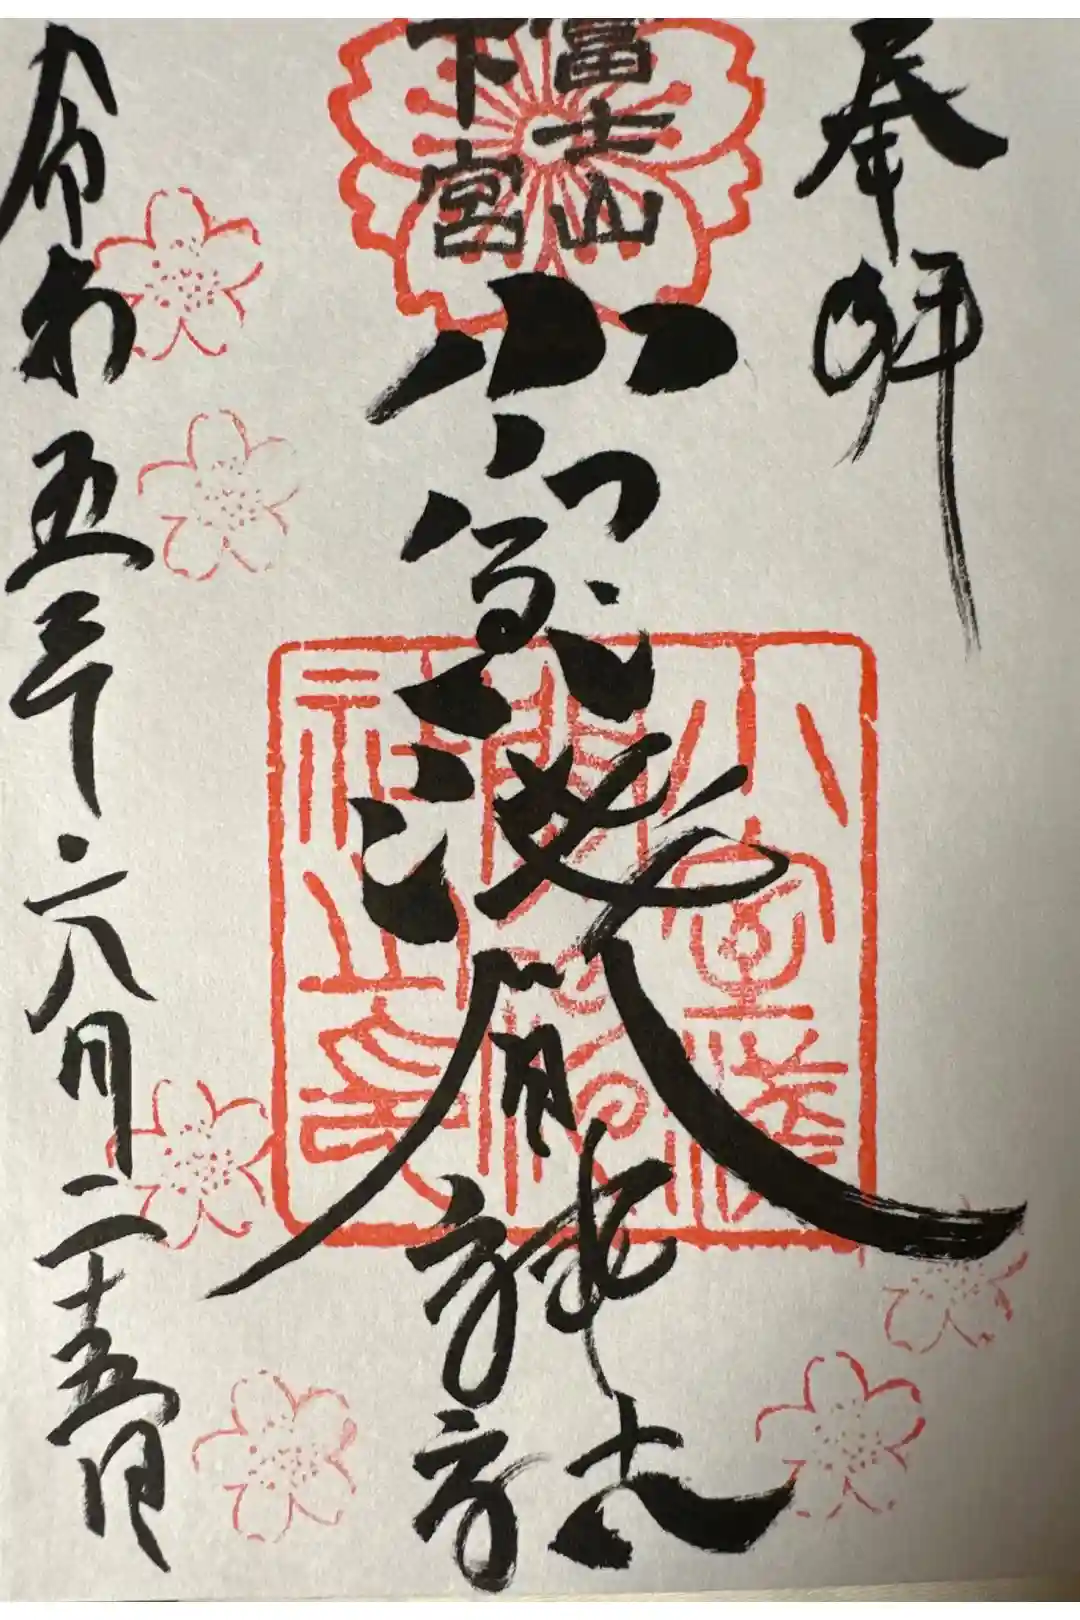 奉拝
富士山
下宮
小室浅間神社
小室浅間
神社之印
令和五年六月二十五日